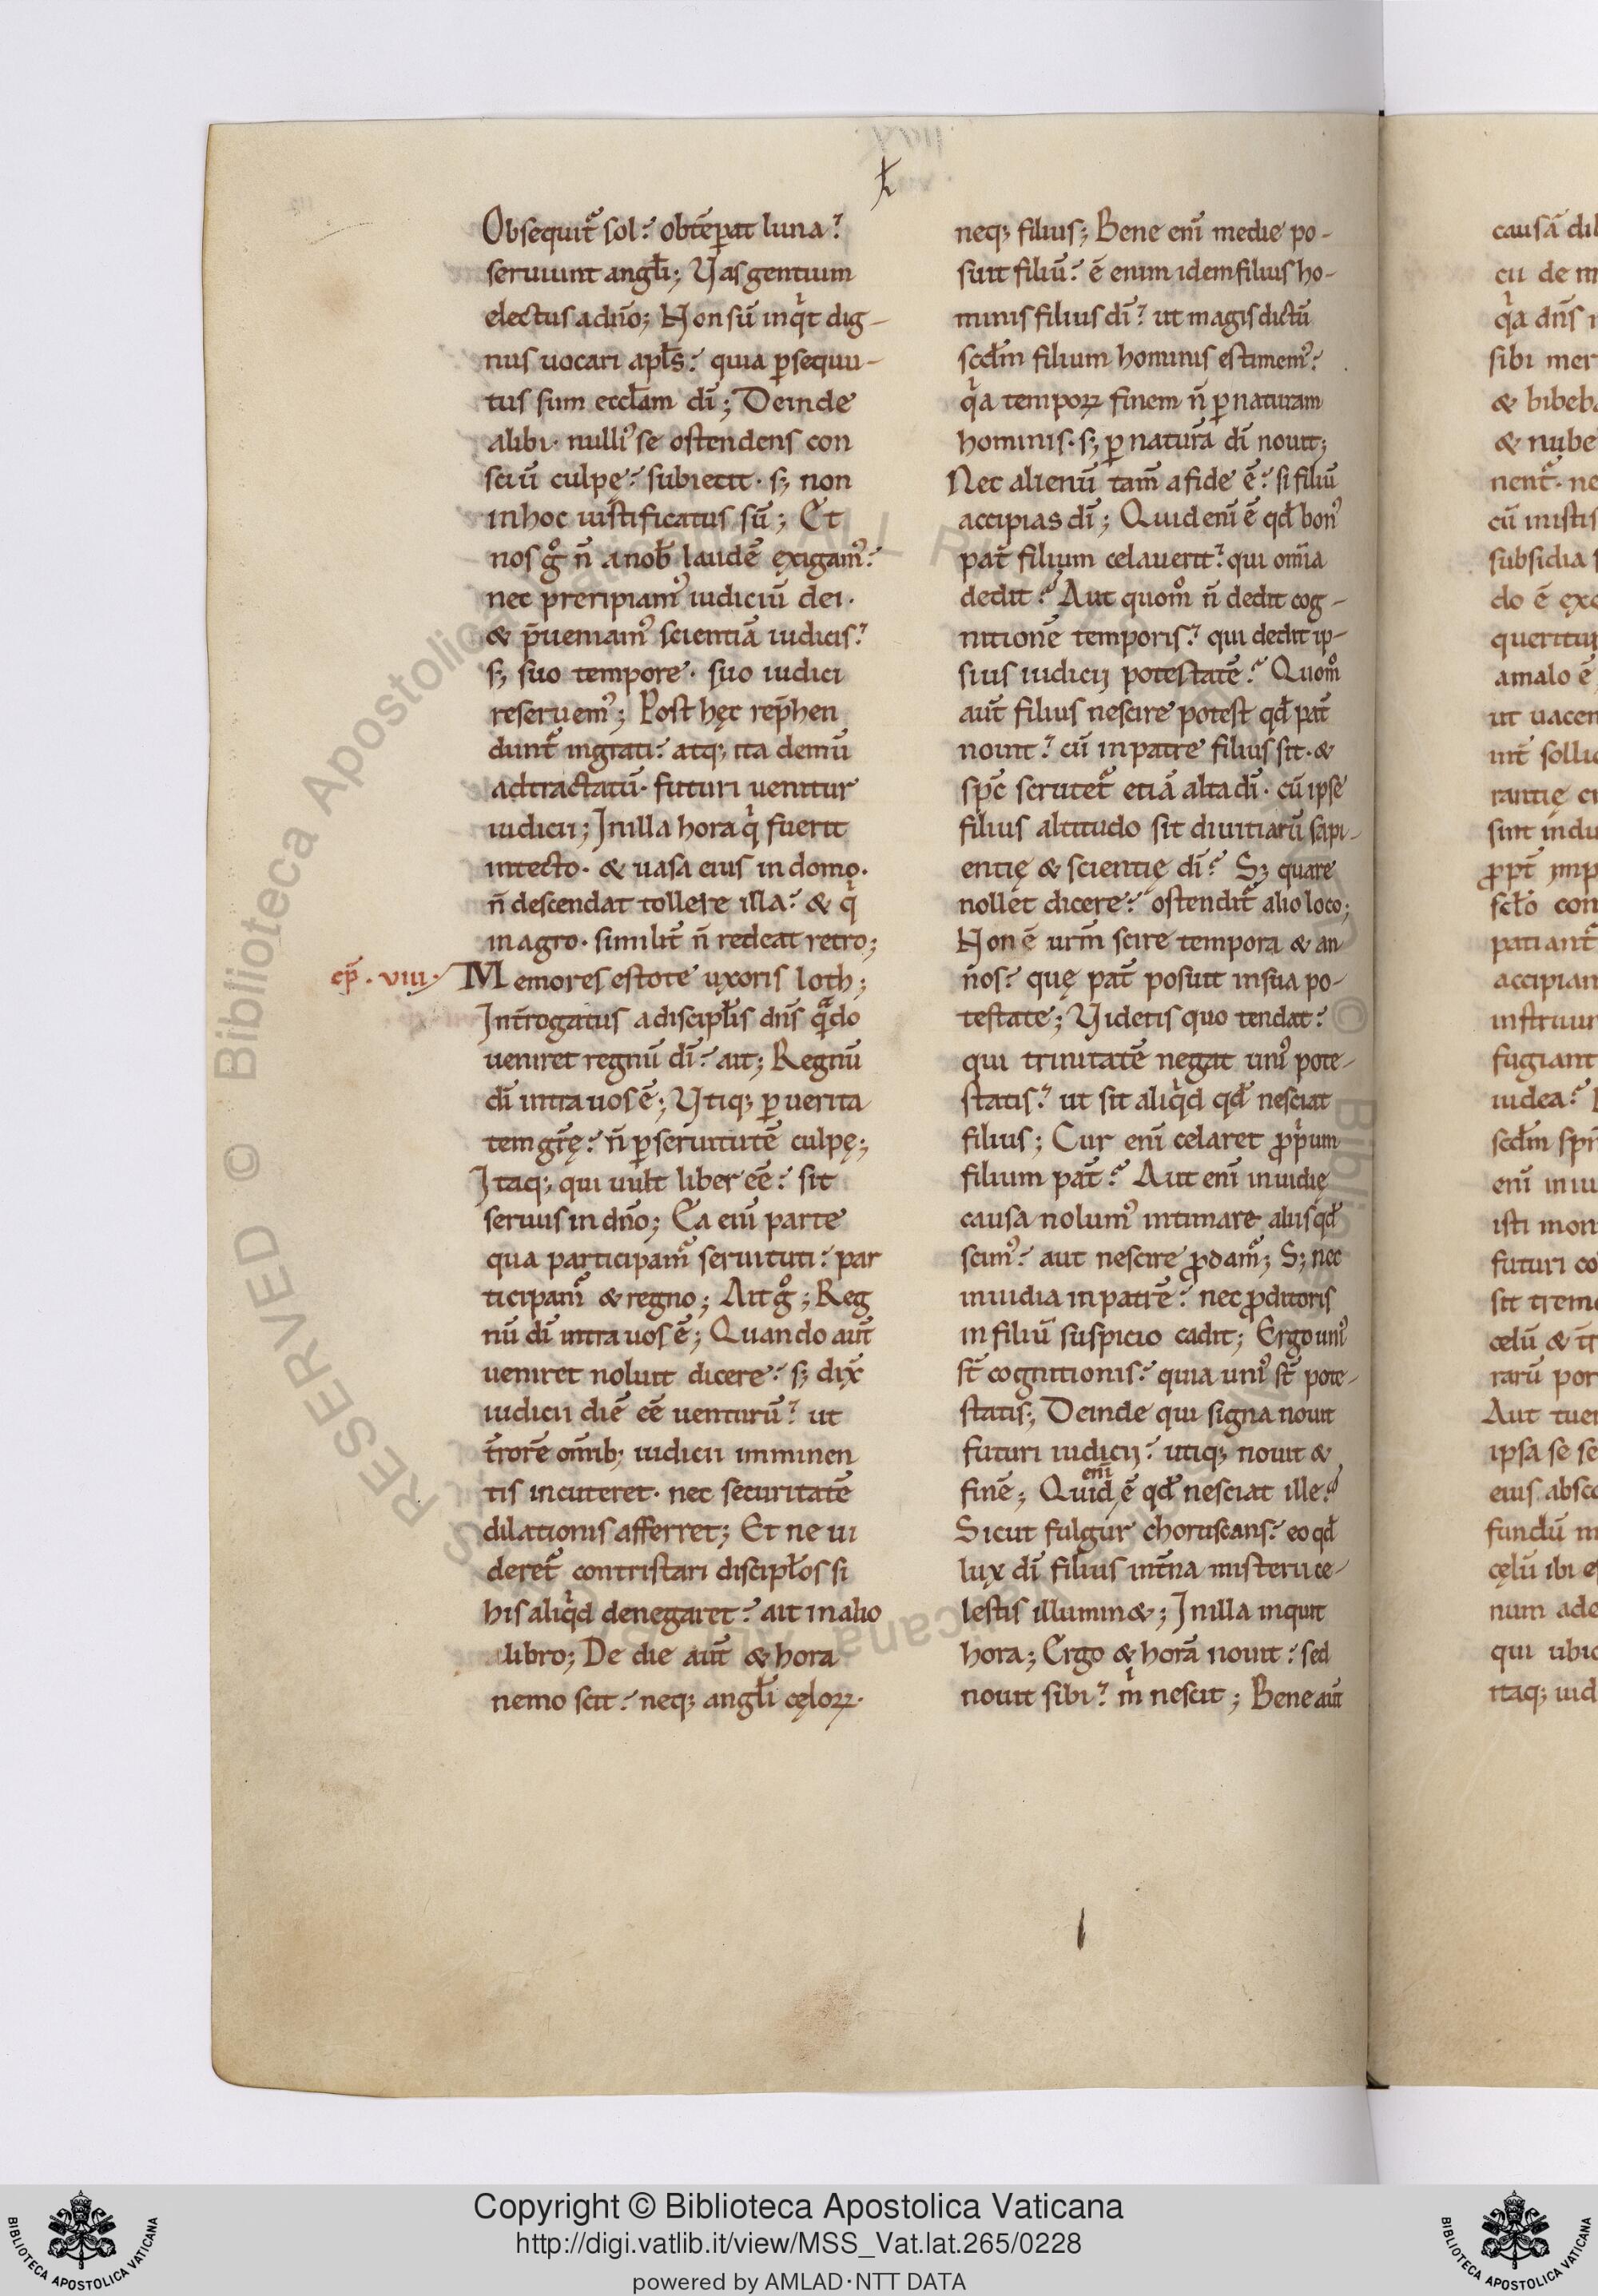 Obsequit᷑ sol? obtēꝑat luna?
seruiunt angłi; Vas gentium
electus a dn̄o; Non sū inqͥt dig-
nus uocari apłs? quia ꝑsequu-
tus sum eccłam dī; Deinde
alibi· nulliꝰ se ostendens con
sciū culpę? subiecit· sꝫ non
in hoc iustificatus sū; Et
nos gͦ n̄ a nob̄ laudē exigamꝰ?
nec preripiamꝰ iudiciū dei·
& p̄ueniamꝰ scientiā iudicis?
sꝫ suo tempore· suo iudici
reseruemꝰ; Post hęc rep̄hen
dunt᷑ ingrati? atqꝫ ita demū
ad tractatū· futuri uenitur
iudicii; In illa hora qͥ fuerit
in tecto· & uasa eius in domo·
n̄ descendat tollere illa? & qͥ
in agro· similit̄ n̄ redeat retro;
cp̄. viii· Memores estote uxoris loth;
Int̄rogatus a discipłis dn̄s qͣdo
ueniret regnū dī? ait; Regnū
dī intra uos ē; Vtiqꝫ ꝑ uerita
tem gr̄ę? n̄ ꝑ seruitutē culpę;
Itaqꝫ qui uult liber eē? sit
seruus in dn̄o; Ea eni᷑ parte
qua participam᷑ seruituti? par
ticipam᷑ & regno; Ait gͦ; Reg
nū dī intra uos ē; Quando aut̄
ueniret noluit dicere? sꝫ dix̄
iudicii diē eē uenturū? ut
t̄rorē om̄ibꝫ iudicii imminen
tis incuteret· nec securitatē
dilationis afferret; Et ne ui
deret᷑ contristari discipłos si
his aliqͥd denegaret? ait in alio
libro; De die aut̄ & hora
nemo scit? neqꝫ angłi cęloꝝ·
neqꝫ filius; Bene enī medie po-
suit filiū? ē enim idem filius ho-
minis filius dī? ut magis dictū
scd̄m filium hominis estimemꝰ?
qͥa tempoꝝ finem n̄ ꝑ naturam
hominis· sꝫ ꝑ naturā dī nouit;
Nec alienū tam̄ a fide ē? si filiū
accipias dī; Quid enī ē qd̄ bonꝰ
pat̄ filium celauerit? qui om̄ia
dedit? Aut quomͦ n̄ dedit cog-
nitionē temporis? qui dedit ip-
sius iudicij potestatē? Quomͦ
aut̄ filius nescire potest qd̄ pat̄
nouit? cū in patre filius sit· &
sp̄c scrutet᷑ etiā alta dī· cū ipse
filius altitudo sit diuitiarū sapi-
entię & scientię dī? Sꝫ quare
nollet dicere? ostendit᷑ alio loco;
Non ē ur̄m scire tempora & an-
nos? quę pat̄ posuit in sua po-
testate; Videtis quo tendat?
qui trinitatē negat uniꝰ pote-
statis? ut sit aliqͥd qd̄ nesciat
filius; Cur enī celaret ꝓpͥum
filium pat̄? Aut enī inuidię
causa nolumꝰ intimare aliis qd̄
scimꝰ? aut nescire ꝓdam᷑; Sꝫ nec
inuidia in patrē? nec ꝓditoris
in filiū suspicio cadit; Ergo uniꝰ
st̄ cognitionis? quia uniꝰ st̄ pote-
statis; Deinde qui signa nouit
futuri iudicij? utiqꝫ nouit &
finē; Quid enī ē qd̄ nesciat ille?
Sicut fulgur choruscans? eo qd̄
lux dī filius int̄na misterii ce-
lestis illumin&; In illa inquit
hora; Ergo & horā nouit? sed
nouit sibi? mͥ nescit; Bene aut̄
Copyright © Biblioteca Apostolica Vaticana
http://digi.vatlib.it/view/MSS_Vat.lat.265/0228
powered by AMLAD·NTT DATA